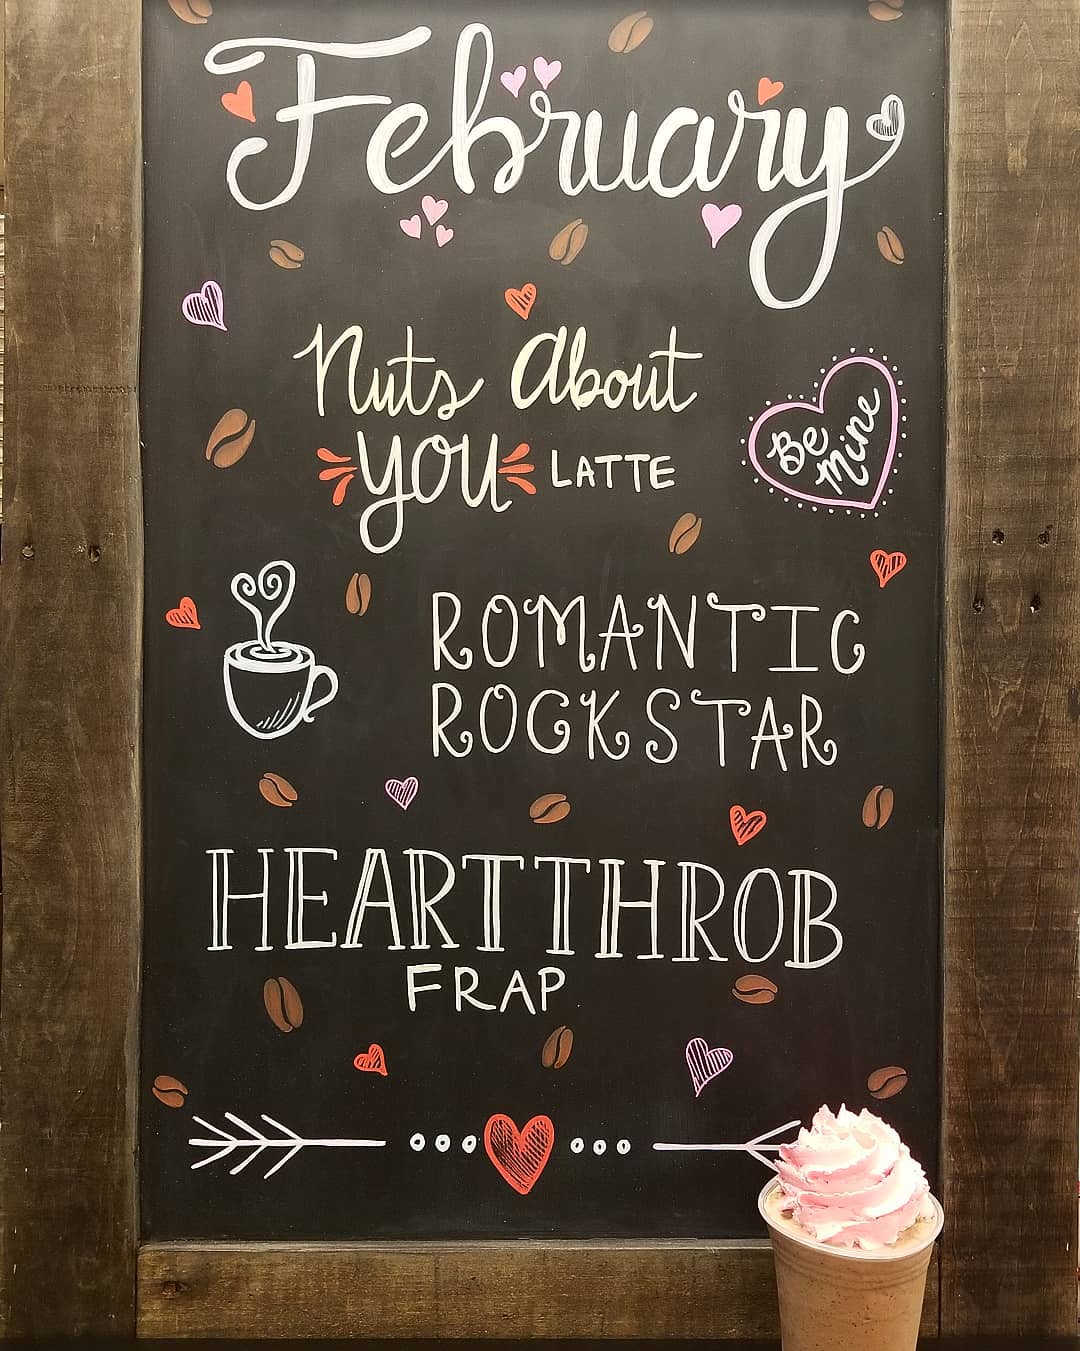 February
Nuts About
YOU LATTE
Be
Mine
ROMANTIC
ROCKSTAR
HEARTTHROB
FRAP